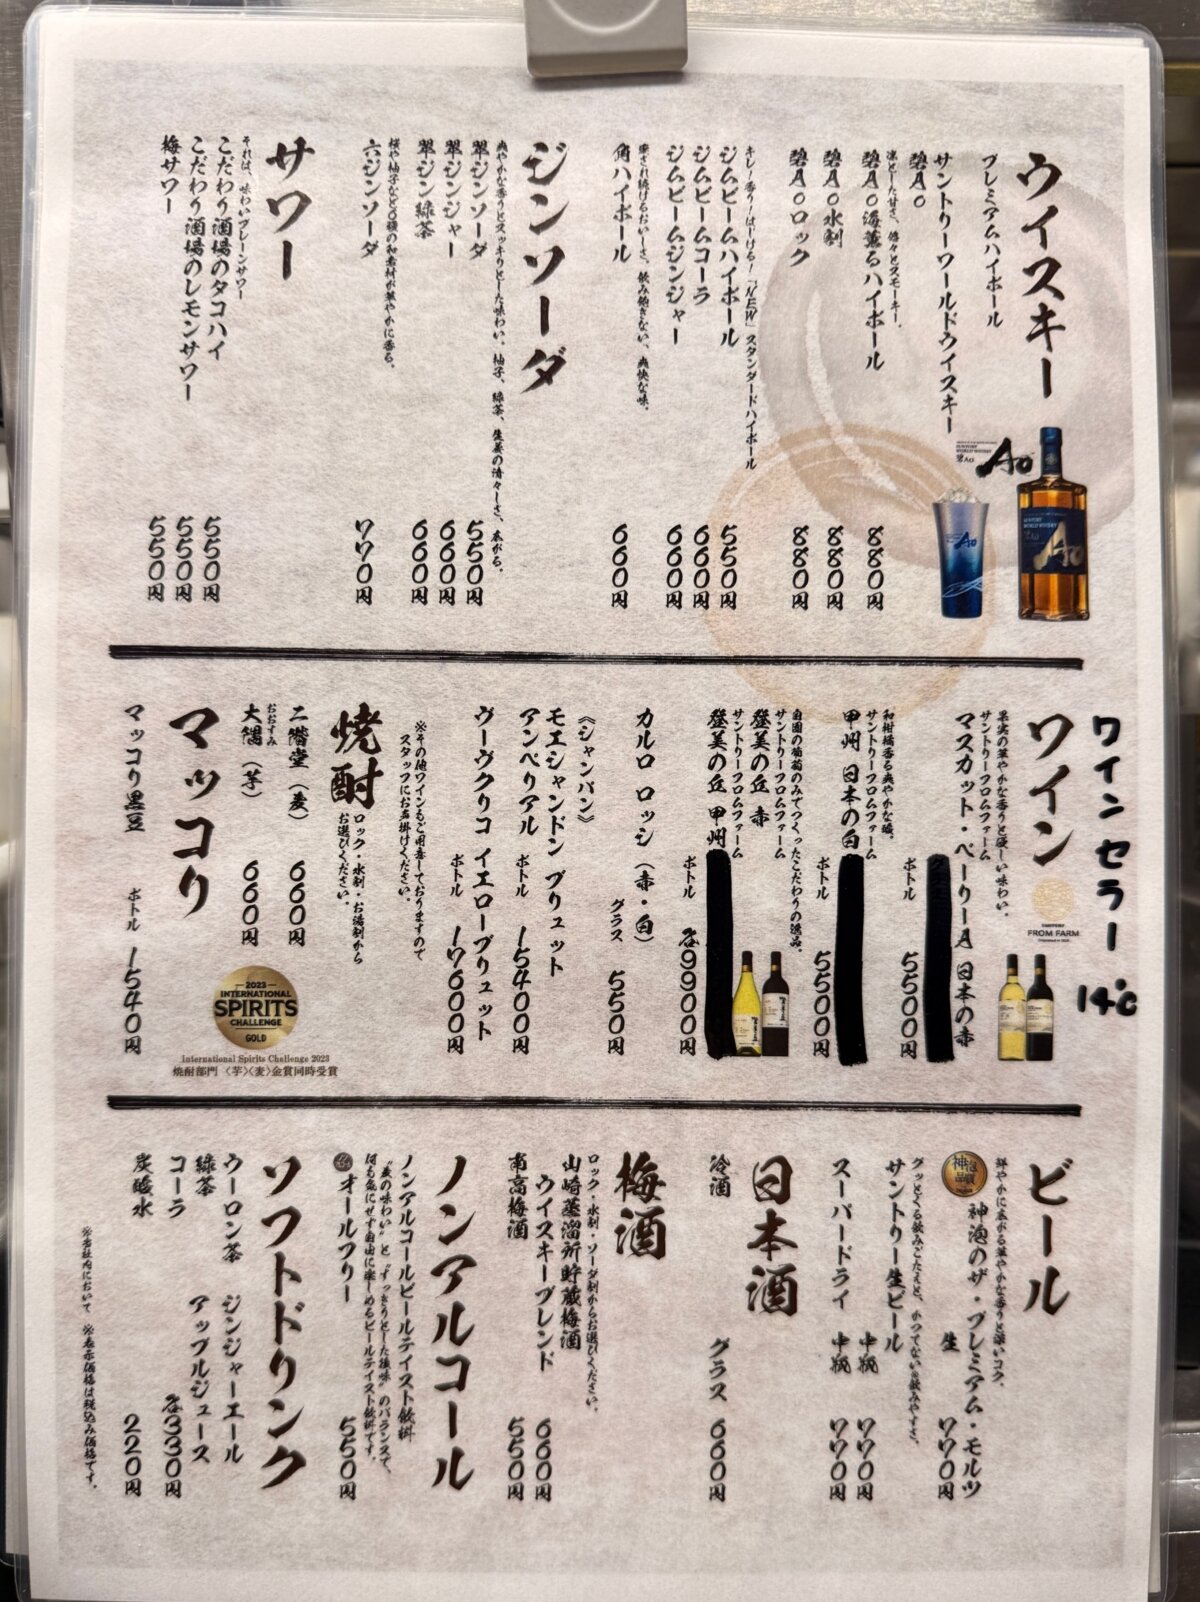 ウイスキー
プレミアムハイボール
サントリーワールドウイスキー
碧Ao
凛とした甘さ、悠々とスモーキー。
碧Ao海薫るハイボール 880円
碧Ao水割 880円
碧Aoロック 880円
SUNTORY WORLD WHISKY
碧Ao
Ao
キレ!香り!はじける!「NEW」スタンダードハイボール
ジムビームハイボール 550円
ジムビームコーラ 660円
ジムビームジンジャー 660円
愛され続けるおいしさ。飲み飽きない、爽快な味。
角ハイボール 660円
ジンソーダ
爽やかな香りとスッキリとした味わい。柚子、緑茶、生姜の清々しさ、広がる。
翠ジンソーダ 550円
翠ジンジャー 660円
翠ジン緑茶 660円
桜や柚子など6種の和素材が華やかに香る。
六ジンソーダ 770円
サワー
それは、味わいプレーンサワー
こだわり酒場のタコハイ 550円
こだわり酒場のレモンサワー 550円
梅サワー 550円
ワインセラー 14℃
ワイン
SUNTORY
FROM FARM
果実の華やかな香りと優しい味わい。
サントリーフロムファーム
マスカット・ベーリーA 日本の赤
ボトル 5500円
和柑橘香る爽やかな酸。
サントリーフロムファーム
甲州 日本の白
ボトル 5500円
自園の葡萄のみでつくったこだわりの逸品。
サントリーフロムファーム
登美の丘 赤
サントリーフロムファーム
登美の丘 甲州
ボトル 各9900円
カルロ ロッシ(赤・白)
グラス 550円
《シャンパン》
モエシャンドン ブリュット
アンペリアル ボトル 15400円
ヴーヴクリコ イエローブリュット
ボトル 17600円
※その他ワインもご用意しておりますので
スタッフにお声掛けください。
焼酎
ロック・水割・お湯割から
お選びください。
二階堂(麦) 660円
おおすみ
大隅(芋) 660円
2023
INTERNATIONAL
SPIRITS
CHALLENGE
GOLD
International Spirits Challenge 2023
焼酎部門 〈芋〉〈麦〉金賞同時受賞
マッコリ
マッコリ黒豆 ボトル 1540円
ビール
鮮やかに広がる華やかな香りと深いコク。
神泡品質
神泡のザ・プレミアム・モルツ
生 770円
グッとくる飲みごたえと、かつてない飲みやすさ。
サントリー生ビール
中瓶 770円
スーパードライ 中瓶 770円
日本酒
冷酒 グラス 660円
梅酒
ロック・水割・ソーダ割からお選びください。
山崎蒸溜所貯蔵梅酒
ウイスキーブレンド 660円
南高梅酒 550円
ノンアルコール
ノンアルコールビールテイスト飲料
“麦の味わい”と“すっきりとした後味”のバランスで、
何も気にせず自由に楽しめるビールテイスト飲料です。
オールフリー 550円
ソフトドリンク
ウーロン茶 ジンジャーエール
緑茶 アップルジュース
コーラ 各330円
炭酸水 220円
※当社内において ※表示価格は税込み価格です。